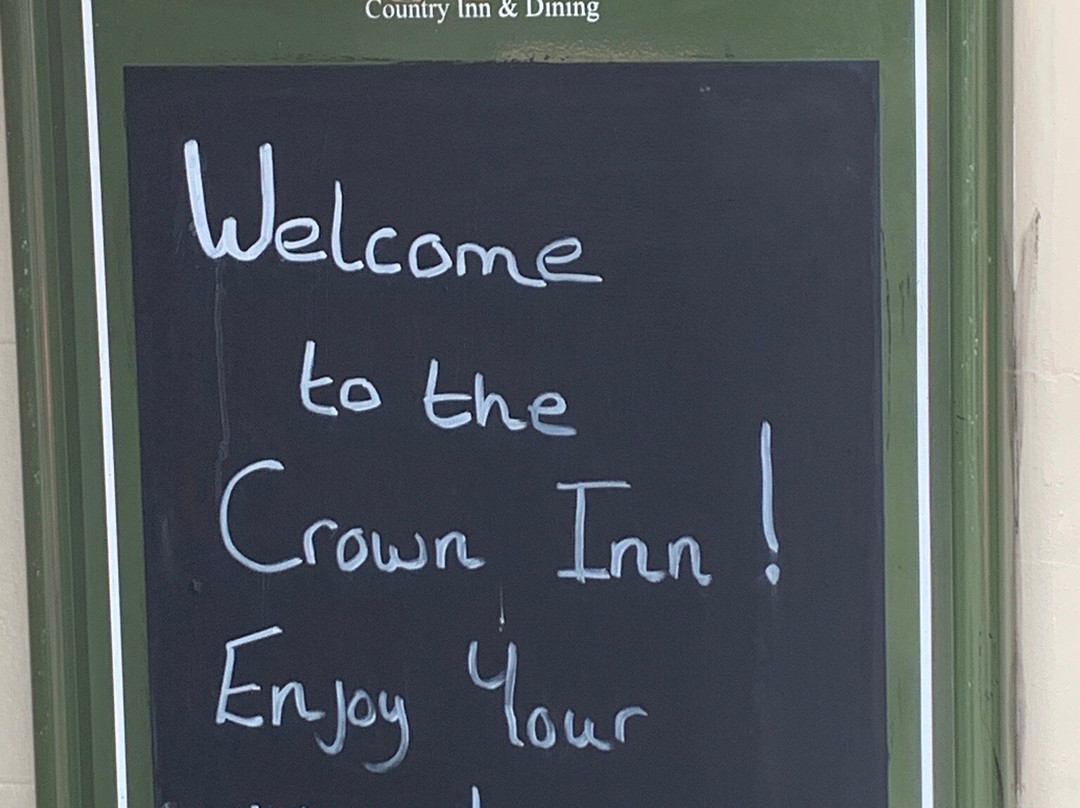 Country Inn & Dining
Welcome
to the
Crown Inn!
Enjoy Your